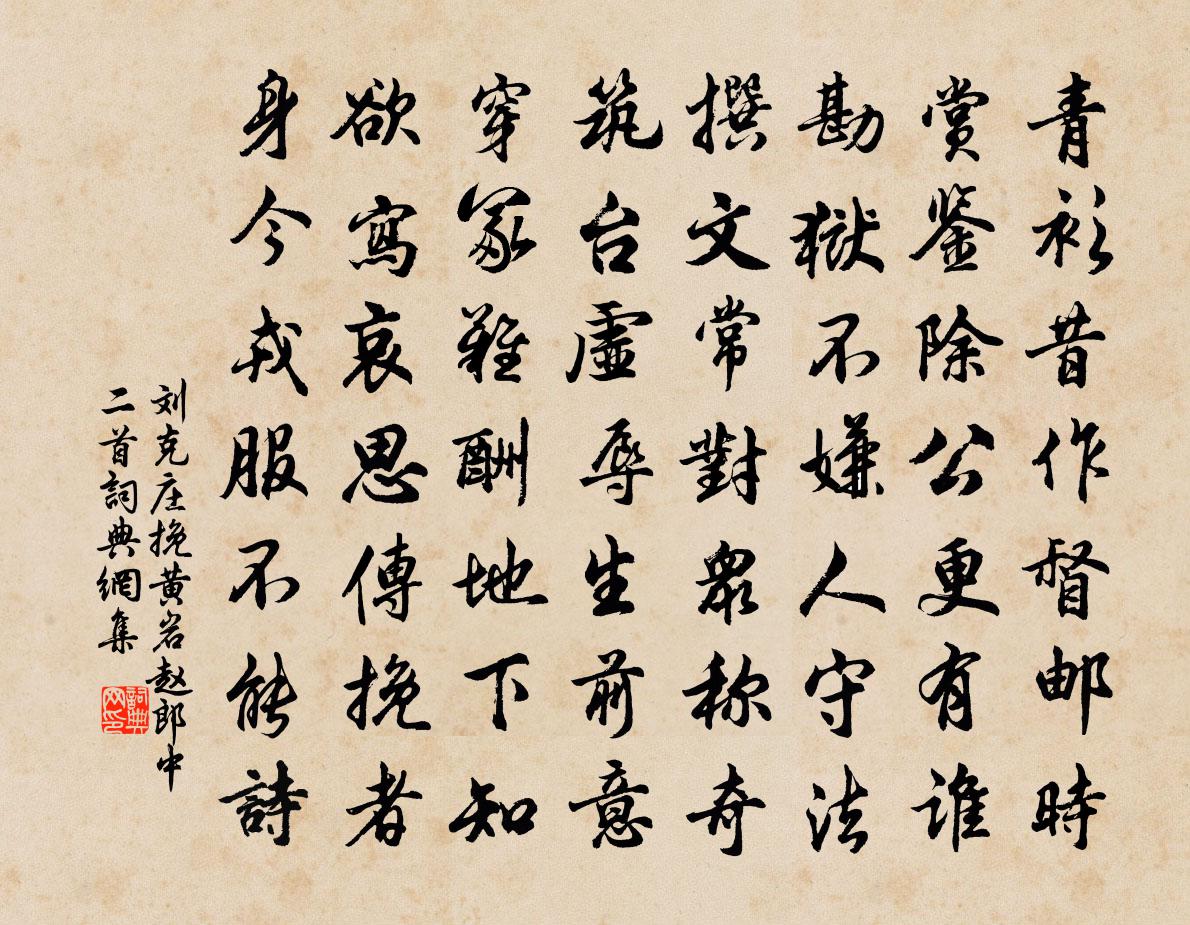 青衫昔作督邮時
赏鉴除公更有谁
勘獄不嫌人守法
撰文常對眾称奇
筑台虚辱生前意
穿冢難酬地下知
欲寫哀思傳挽者
身今戎服不能詩
刘克庄挽黄岩赵郎中
二首詞典網集
詞典
网印